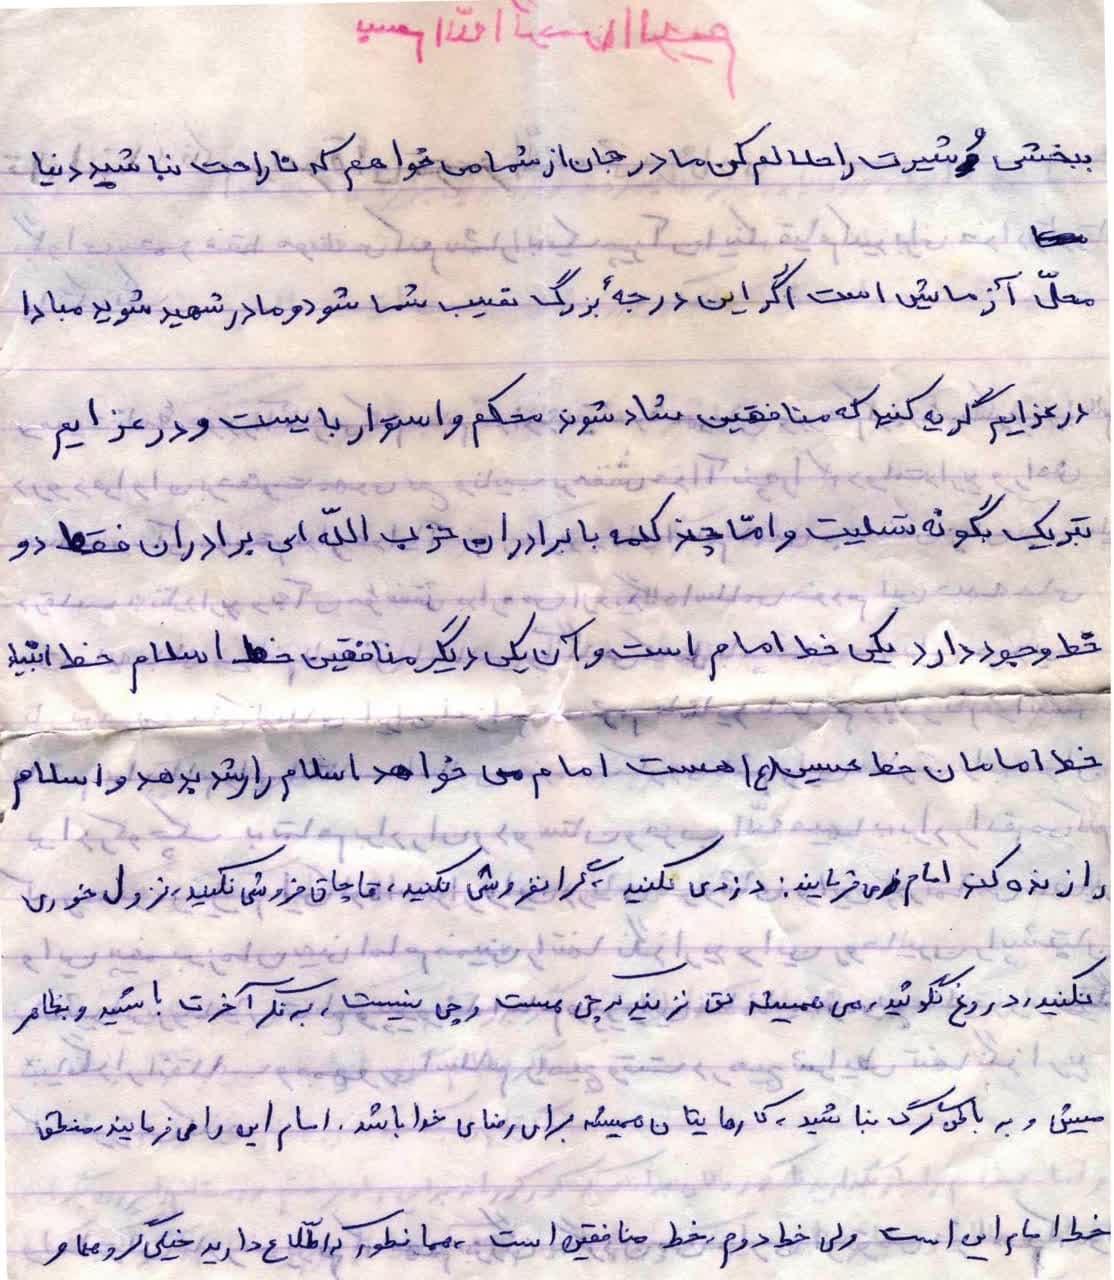 بسم الله الرحمن الرحیم
ببخشی و شیرت را حلالم کن مادر جان از شما می خواهم که ناراحت نباشید دنیا
محلّ آزمایش است اگر این درجهٔ بزرگ نصیب شما شود و مادر شهید شوید مبادا
در عزایم گریه کنید که منافقین شاد شوند محکم و استوار بایست و در عزایم
تبریک بگو نه تسلیت و امّا چند کلمه با برادران حزب اللّه ای برادران فقط دو
خط وجود دارد یکی خط امام است و آن یکی دیگر منافقین خط اسلام خط انبیا
خط امامان خط حسین (ع) هست امام می خواهد اسلام را رشد بدهد و اسلام
را زنده کند امام می فرمایند: دزدی نکنید، گرانفروشی نکنید، قاچاق فروشی نکنید، نزول خوری
نکنید، دروغ نگوئید، می همیشه نق نزنید که چی هست و چی نیست، به فکر آخرت باشید و بظاهر
میش و به باطن گرگ نباشید، کارهایتان همیشه برای رضای خدا باشد. امام این را می فرمایند، منطق
خط امام این است ولی خط دوم، خط منافقین است، همانطور که اطّلاع دارید خیلی گروهها و